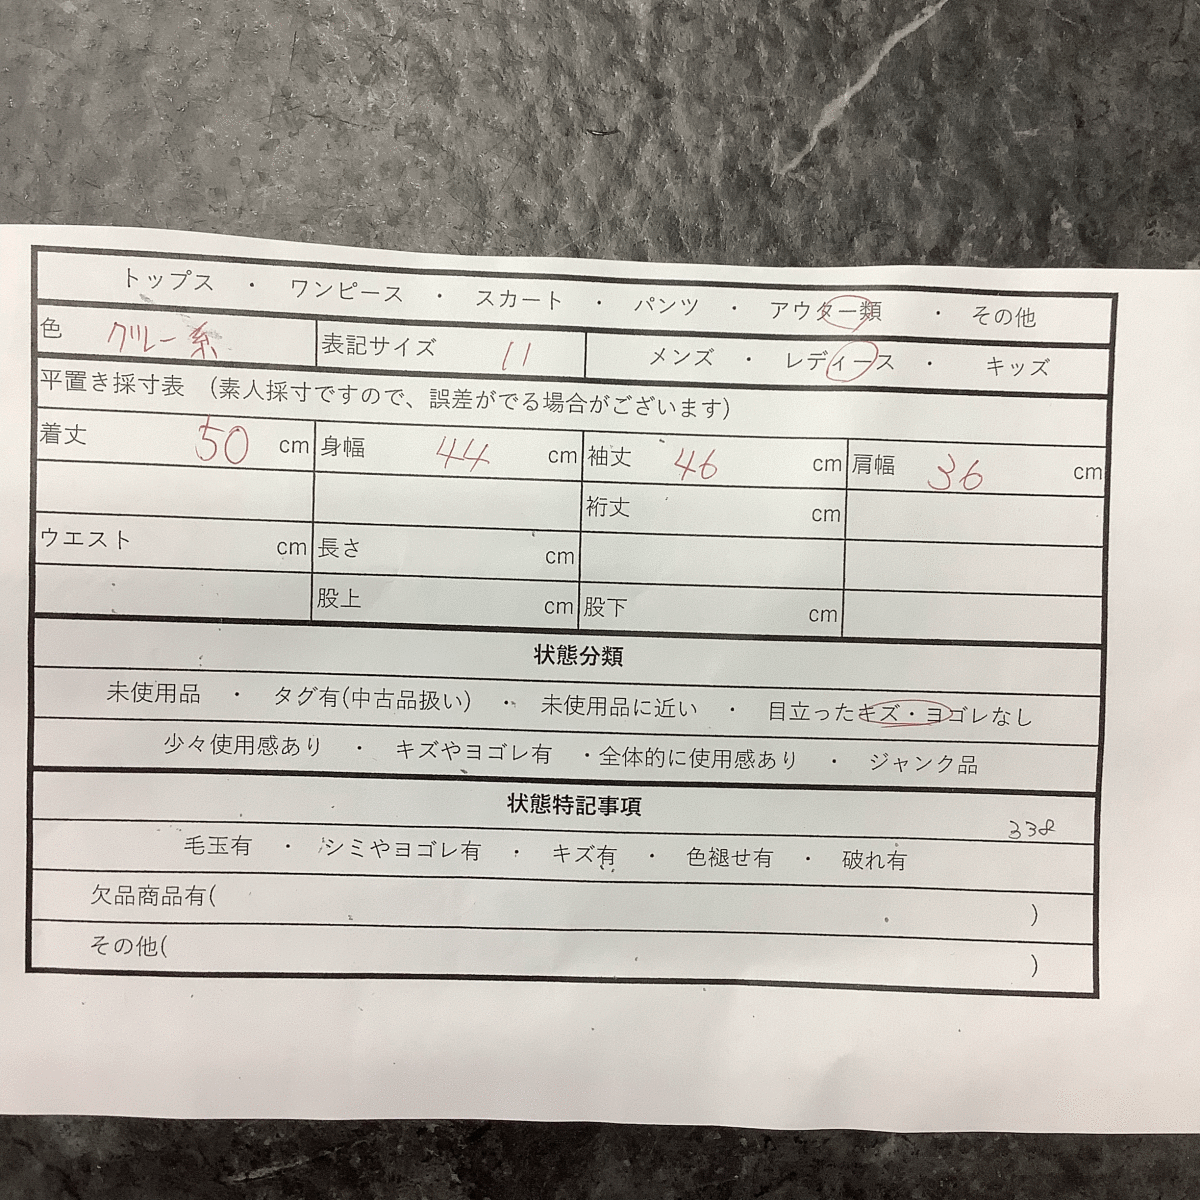 トップス ・ ワンピース ・ スカート ・ パンツ ・ アウター類 ・ その他
色 グレー系 表記サイズ 11 メンズ ・ レディース ・ キッズ
平置き採寸表 (素人採寸ですので、誤差がでる場合がございます)
着丈 50 cm 身幅 44 cm 袖丈 46 cm 肩幅 36 cm
裄丈 cm
ウエスト cm 長さ cm
股上 cm 股下 cm
状態分類
未使用品 ・ タグ有(中古品扱い) ・ 未使用品に近い ・ 目立ったキズ・ヨゴレなし
少々使用感あり ・ キズやヨゴレ有 ・全体的に使用感あり ・ ジャンク品
状態特記事項
338
毛玉有 ・ シミやヨゴレ有 ・ キズ有 ・ 色褪せ有 ・ 破れ有
欠品商品有( )
その他( )